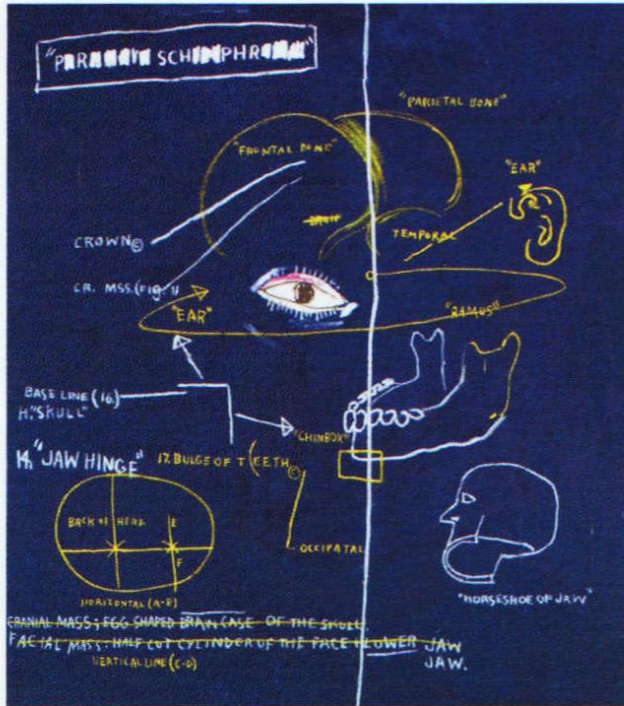 "PARANOIA SCHIZOPHRENIA"
"PARIETAL BONE"
"FRONTAL BONE"
"EAR"
TEMPORAL
CROWN©
CR. MSS.(Fig. 1)
"EAR"
"RAMUS"
BASE LINE (16.)
H."SKULL"
"CHINBOX"
14. "JAW HINGE"
17. BULGE OF T(EETH©
BACK OF HEAD
E
F
OCCIPATAL
HORIZONTAL (A-B)
"HORSESHOE OF JAW"
CRANIAL MASS; EGG SHAPED BRAIN CASE OF THE SKULL
FACIAL MASS: HALF CUT CYLINDER OF THE FACE + LOWER JAW
JAW.
VERTICAL LINE (C-D)